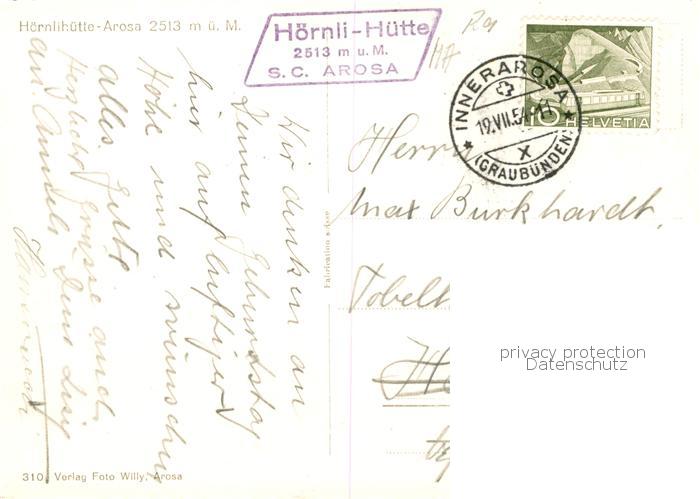 Hörnlihütte-Arosa 2513 m ü. M.
Hörnli-Hütte
2513 m ü. M.
S. C. AROSA
INNERAROSA
19.VII.54-11
X
(GRAUBÜNDEN)
10 HELVETIA
Wir denken an
Deinen Geburtstag
hier auf luftiger
Höhe und wünschen
alles Gute
Herzliche Grüsse auch
an
Herrn
Max Burkhardt,
Tobel
Fabrication suisse
310 Verlag Foto Willy, Arosa
privacy protection
Datenschutz